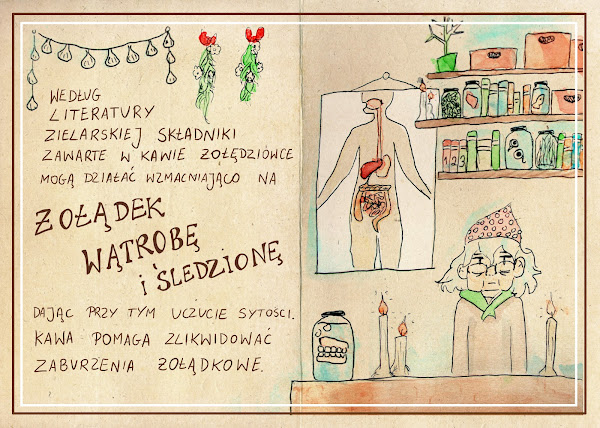 WEDŁUG
LITERATURY
ZIELARSKIEJ SKŁADNIKI
ZAWARTE W KAWIE ŻOŁĘDZIÓWCE
MOGĄ DZIAŁAĆ WZMACNIAJĄCO NA
ŻOŁĄDEK
WĄTROBĘ
i ŚLEDZIONĘ
DAJĄC PRZY TYM UCZUCIE SYTOŚCI.
KAWA POMAGA ZLIKWIDOWAĆ
ZABURZENIA ŻOŁĄDKOWE.
1 2 3